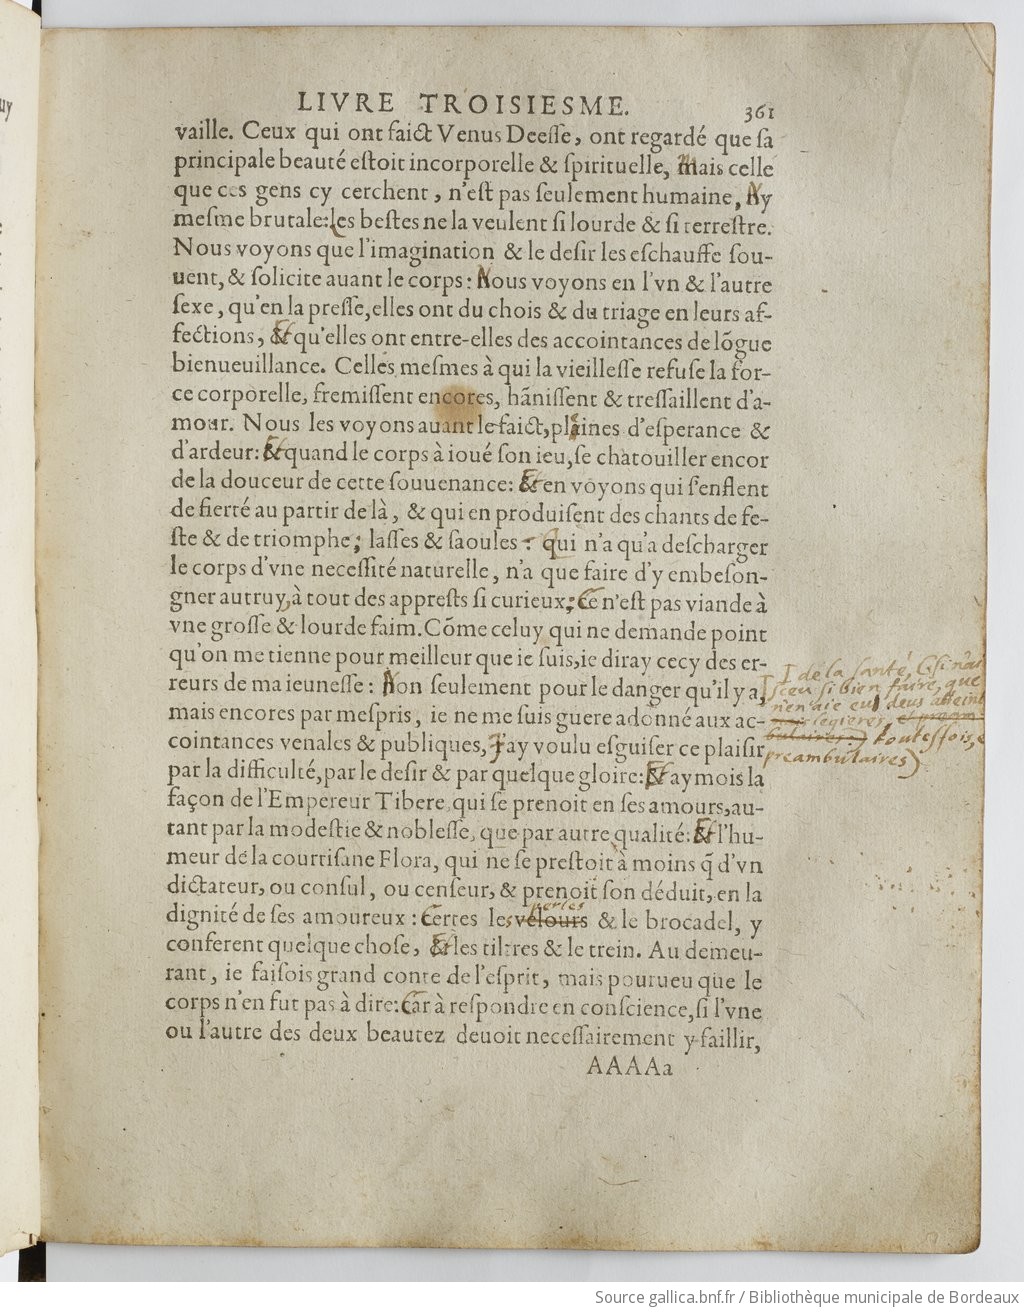 LIVRE TROISIESME. 361
vaille. Ceux qui ont faict Venus Deeſſe, ont regardé que ſa
principale beauté eſtoit incorporelle & ſpirituelle, Mais celle
que ces gens cy cerchent, n'eſt pas ſeulement humaine, Ny
meſme brutale: Les beſtes ne la veulent ſi lourde & ſi terreſtre.
Nous voyons que l'imagination & le deſir les eſchauffe ſou-
uent, & ſolicite auant le corps: Nous voyons en l'vn & l'autre
ſexe, qu'en la preſſe, elles ont du chois & du triage en leurs af-
fections, Et qu'elles ont entre-elles des accointances de lõgue
bienueuillance. Celles meſmes à qui la vieilleſſe refuſe la for-
ce corporelle, fremiſſent encores, hãniſſent & treſſaillent d'a-
mour. Nous les voyons auant le faict, plaines d'eſperance &
d'ardeur: Et quand le corps à ioué ſon ieu, ſe chatouiller encor
de la douceur de cette ſouuenance: Et en voyons qui ſ'enflent
de fierté au partir de là, & qui en produiſent des chants de fe-
ſte & de triomphe; laſſes & ſaoules: qui n'a qu'a deſcharger
le corps d'vne neceſſité naturelle, n'a que faire d'y embeſon-
gner autruy, à tout des appreſts ſi curieux; Ce n'eſt pas viande à
vne groſſe & lourde faim. Cõme celuy qui ne demande point
qu'on me tienne pour meilleur que ie ſuis, ie diray cecy des er-
reurs de ma ieuneſſe: Non ſeulement pour le danger qu'il y a,
mais encores par meſpris, ie ne me ſuis guere adonné aux ac-
cointances venales & publiques, J'ay voulu eſguiſer ce plaiſir
par la difficulté, par le deſir & par quelque gloire: Et aymois la
façon de l'Empereur Tibere, qui ſe prenoit en ſes amours, au-
tant par la modeſtie & nobleſſe, que par autre qualité: Et l'hu-
meur de la courtiſane Flora, qui ne ſe preſtoit à moins q̃ d'vn
dictateur, ou conſul, ou cenſeur, & prenoit ſon déduit, en la
perles
dignité de ſes amoureux: Certes les velours & le brocadel, y
conferent quelque choſe, Et les tiltres & le trein. Au demeu-
rant, ie faiſois grand conte de l'eſprit, mais pourueu que le
corps n'en fut pas à dire: Car à reſpondre en conſcience, ſi l'vne
ou l'autre des deux beautez deuoit neceſſairement y faillir,
AAAAa
de la santé, (si n'ai
sceu si bien faire, que
n'en aie eu deus atteint
legieres,
toutesfois, e
preambulaires)
Source gallica.bnf.fr / Bibliothèque municipale de Bordeaux